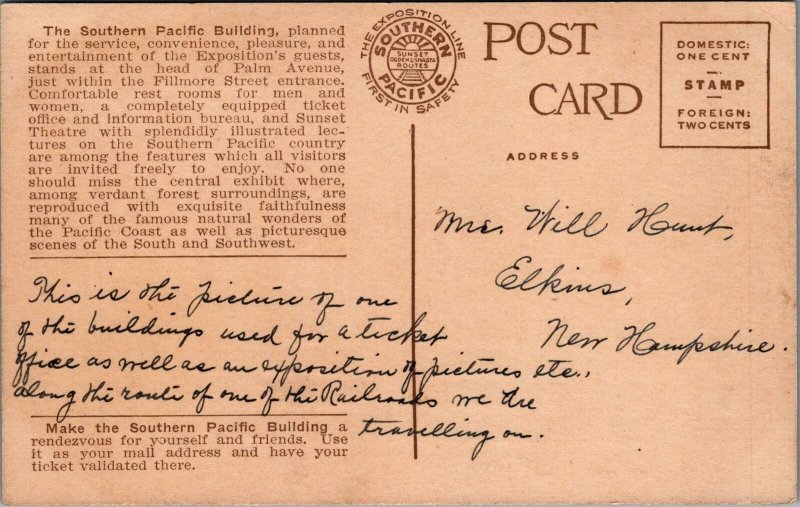 The Southern Pacific Building, planned
for the service, convenience, pleasure, and
entertainment of the Exposition's guests,
stands at the head of Palm Avenue,
just within the Fillmore Street entrance.
Comfortable rest rooms for men and
women, a completely equipped ticket
office and information bureau, and Sunset
Theatre with splendidly illustrated lec-
tures on the Southern Pacific country
are among the features which all visitors
are invited freely to enjoy. No one
should miss the central exhibit where,
among verdant forest surroundings, are
reproduced with exquisite faithfulness
many of the famous natural wonders of
the Pacific Coast as well as picturesque
scenes of the South and Southwest.
This is the picture of one
of the buildings used for a ticket
office as well as an exposition of pictures etc.,
along the route of one of the Railroads we are
travelling on.
Make the Southern Pacific Building a
rendezvous for yourself and friends. Use
it as your mail address and have your
ticket validated there.
THE EXPOSITION LINE
SOUTHERN
SUNSET
OGDEN & SHASTA
ROUTES
PACIFIC
FIRST IN SAFETY
POST
CARD
ADDRESS
DOMESTIC:
ONE CENT
STAMP
FOREIGN:
TWO CENTS
Mrs. Will Hunt,
Elkins,
New Hampshire.